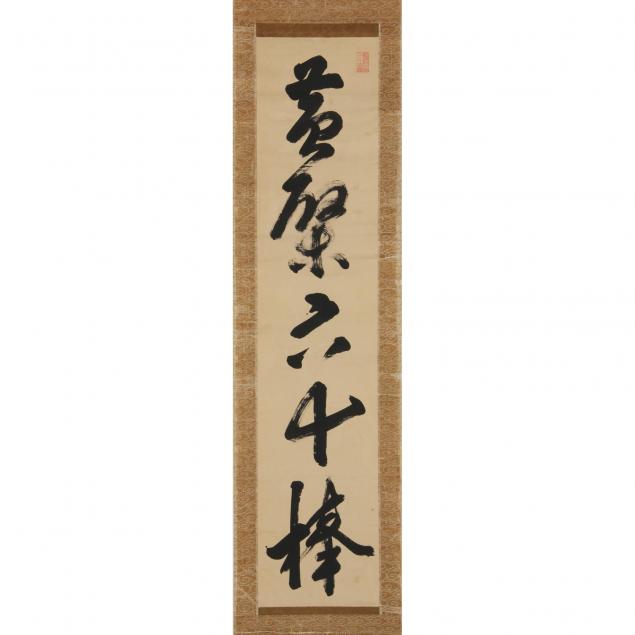 黄檗六十棒